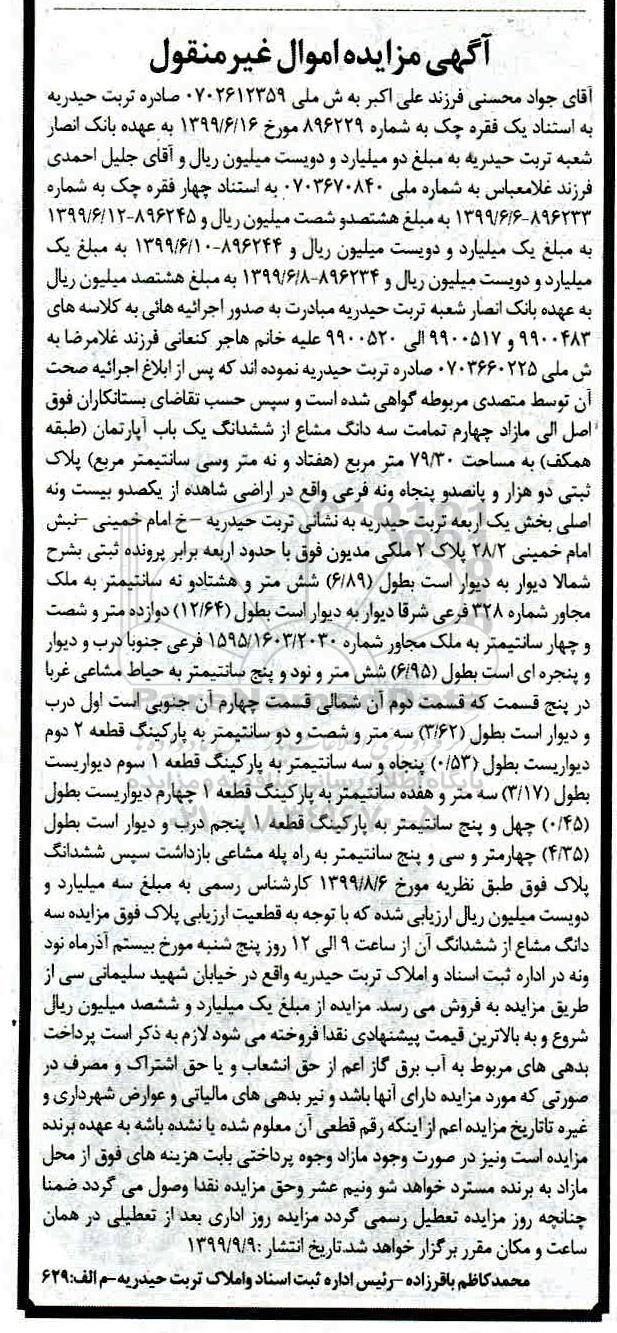 آگهی مزایده اموال غیرمنقول
آقای جواد محسنی فرزند علی اکبر به ش ملی ۰۷۰۲۶۱۲۳۵۹ صادره تربت حیدریه
به استناد یک فقره چک به شماره ۸۹۶۲۲۹ مورخ ۱۳۹۹/۶/۱۶ به عهده بانک انصار
شعبه تربت حیدریه به مبلغ دو میلیارد و دویست میلیون ریال و آقای جلیل احمدی
فرزند غلامعباس به شماره ملی ۰۷۰۳۶۷۰۸۴۰ به استناد چهار فقره چک به شماره
۸۹۶۲۳۳-۱۳۹۹/۶/۶ به مبلغ هشتصدو شصت میلیون ریال و ۸۹۶۲۴۵-۱۳۹۹/۶/۱۲
به مبلغ یک میلیارد و دویست میلیون ریال و ۸۹۶۲۴۴-۱۳۹۹/۶/۱۰ به مبلغ یک
میلیارد و دویست میلیون ریال و ۸۹۶۲۳۴-۱۳۹۹/۶/۸ به مبلغ هشتصد میلیون ریال
به عهده بانک انصار شعبه تربت حیدریه مبادرت به صدور اجرائیه هائی به کلاسه های
۹۹۰۰۴۸۳ و ۹۹۰۰۵۱۷ الی ۹۹۰۰۵۲۰ علیه خانم هاجر کنعانی فرزند غلامرضا به
ش ملی ۰۷۰۳۶۶۰۲۲۵ صادره تربت حیدریه نموده اند که پس از ابلاغ اجرائیه صحت
آن توسط متصدی مربوطه گواهی شده است و سپس حسب تقاضای بستانکاران فوق
اصل الی مازاد چهارم تمامت سه دانگ مشاع از ششدانگ یک باب آپارتمان (طبقه
همکف) به مساحت ۷۹/۳۰ متر مربع (هفتاد و نه متر وسی سانتیمتر مربع) پلاک
ثبتی دو هزار و پانصدو پنجاه ونه فرعی واقع در اراضی شاهده از یکصدو بیست ونه
اصلی بخش یک اربعه تربت حیدریه به نشانی تربت حیدریه -خ امام خمینی -نبش
امام خمینی ۲۸/۲ پلاک ۲ ملکی مدیون فوق با حدود اربعه برابر پرونده ثبتی بشرح
شمالا دیوار به دیوار است بطول (۶/۸۹) شش متر و هشتادو نه سانتیمتر به ملک
مجاور شماره ۳۲۸ فرعی شرقا دیوار به دیوار است بطول (۱۲/۶۴) دوازده متر و شصت
و چهار سانتیمتر به ملک مجاور شماره ۱۵۹۵/۱۶۰۳/۲۰۳۰ فرعی جنوبا درب و دیوار
و پنجره ای است بطول (۶/۹۵) شش متر و نود و پنج سانتیمتر به حیاط مشاعی غربا
در پنج قسمت که قسمت دوم آن شمالی قسمت چهارم آن جنوبی است اول درب
و دیوار است بطول (۳/۶۲) سه متر و شصت و دو سانتیمتر به پارکینگ قطعه ۲ دوم
دیواریست بطول (۰/۵۳) پنجاه و سه سانتیمتر به پارکینگ قطعه ۱ سوم دیواریست
بطول (۳/۱۷) سه متر و هفده سانتیمتر به پارکینگ قطعه ۱ چهارم دیواریست بطول
(۰/۴۵) چهل و پنج سانتیمتر به پارکینگ قطعه ۱ پنجم درب و دیوار است بطول
(۴/۳۵) چهارمتر و سی و پنج سانتیمتر به راه پله مشاعی بازداشت سپس ششدانگ
پلاک فوق طبق نظریه مورخ ۱۳۹۹/۸/۶ کارشناس رسمی به مبلغ سه میلیارد و
دویست میلیون ریال ارزیابی شده که با توجه به قطعیت ارزیابی پلاک فوق مزایده سه
دانگ مشاع از ششدانگ آن از ساعت ۹ الی ۱۲ روز پنج شنبه مورخ بیستم آذرماه نود
ونه در اداره ثبت اسناد و املاک تربت حیدریه واقع در خیابان شهید سلیمانی سی از
طریق مزایده به فروش می رسد. مزایده از مبلغ یک میلیارد و ششصد میلیون ریال
شروع و به بالاترین قیمت پیشنهادی نقدا فروخته می شود لازم به ذکر است پرداخت
بدهی های مربوط به آب برق گاز اعم از حق انشعاب و یا حق اشتراک و مصرف در
صورتی که مورد مزایده دارای آنها باشد و نیر بدهی های مالیاتی و عوارض شهرداری و
غیره تاتاریخ مزایده اعم از اینکه رقم قطعی آن معلوم شده یا نشده باشه به عهده برنده
مزایده است ونیز در صورت وجود مازاد وجوه پرداختی بابت هزینه های فوق از محل
مازاد به برنده مسترد خواهد شو ونیم عشر وحق مزایده نقدا وصول می گردد ضمنا
چنانچه روز مزایده تعطیل رسمی گردد مزایده روز اداری بعد از تعطیلی در همان
ساعت و مکان مقرر برگزار خواهد شد.تاریخ انتشار :۱۳۹۹/۹/۹
محمدکاظم باقرزاده -رئیس اداره ثبت اسناد واملاک تربت حیدریه-م الف:۶۲۹